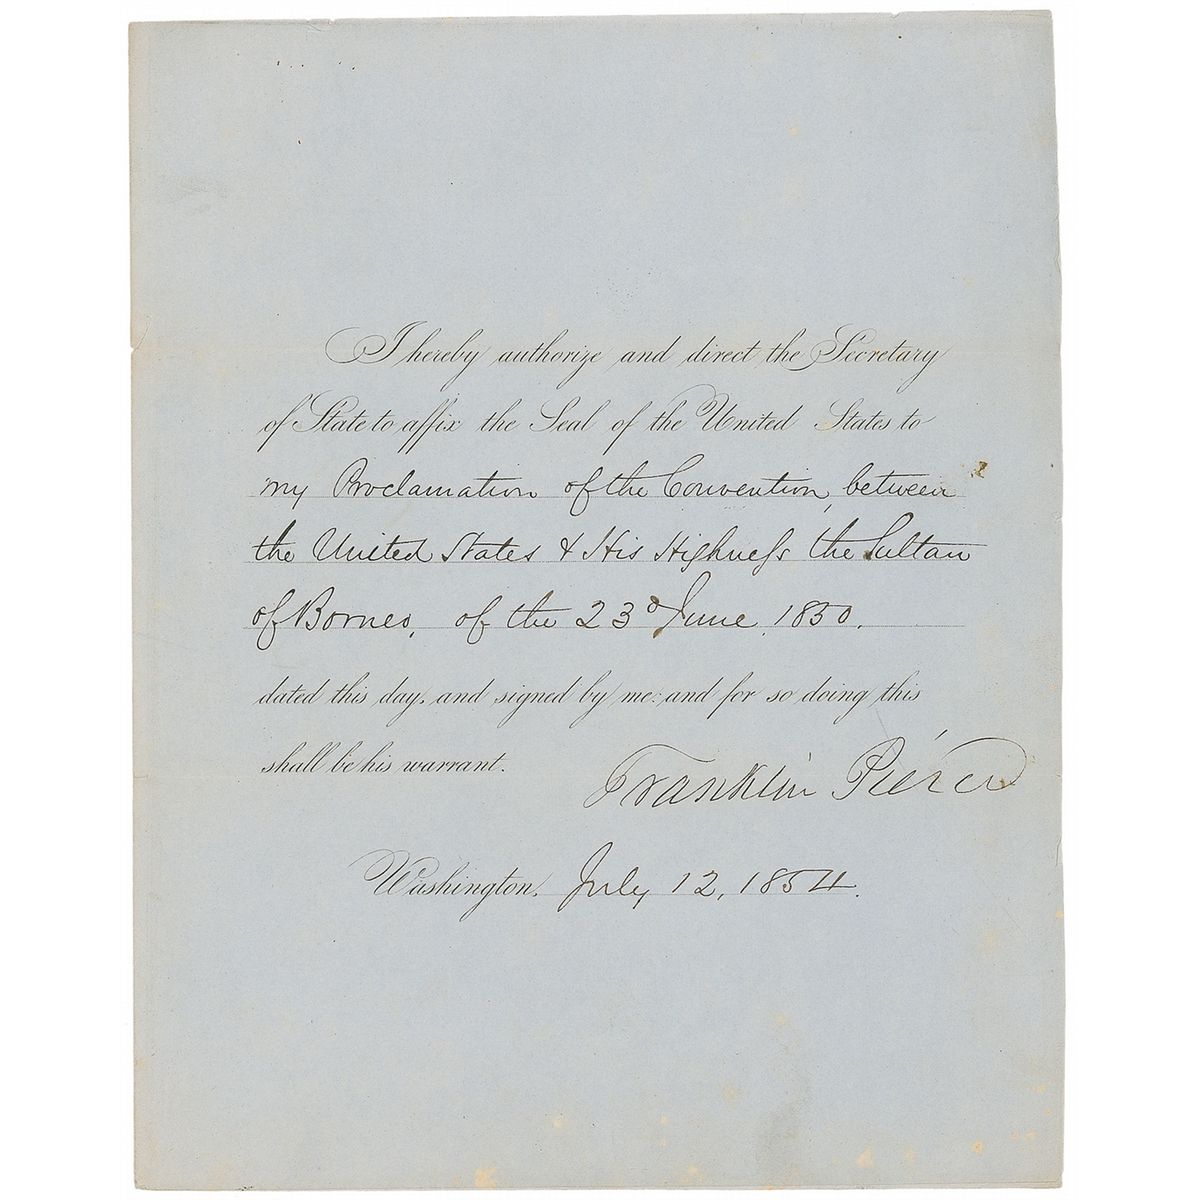 I hereby authorize and direct the Secretary
of State to affix the Seal of the United States to
my Proclamation of the Convention, between
the United States & His Highness the Sultan
of Borneo, of the 23d June, 1850.
dated this day, and signed by me: and for so doing this
shall be his warrant.
Franklin Pierce
Washington, July 12, 1854.